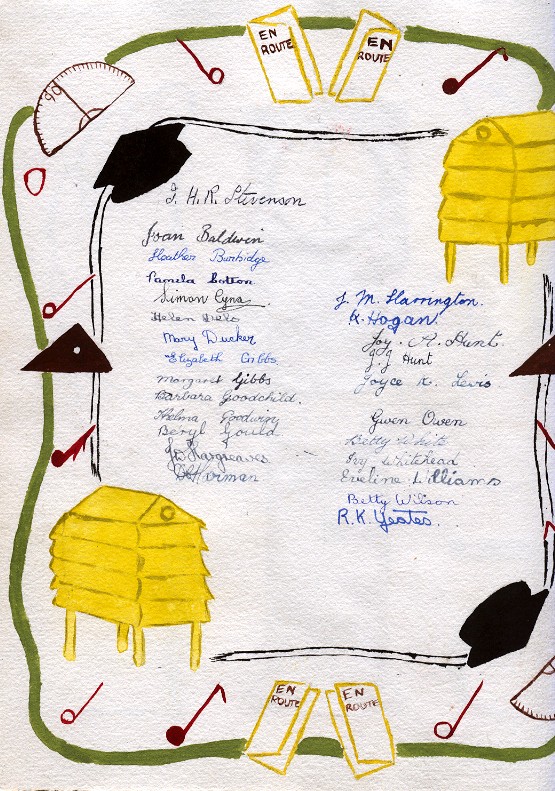 EN
ROUTE
EN
ROUTE
90
J. H. R. Stevenson
Joan Baldwin
Heather Burbidge
Pamela Cotton
Simon Cyna
Helen
Mary Ducker
Elizabeth Gibbs
Margaret Gibbs
Barbara Goodchild
Thelma Goodwin
Beryl Gould
Hargreaves
Horman
J. M. Harrington.
K. Hogan.
Joy. A. Hunt.
J. J Hunt
Joyce K. Lewis
Gwen Owen
Betty White
Ivy Whitehead
Eveline Williams
Betty Wilson
R. K. Yeates.
EN
ROUTE
EN
ROUTE